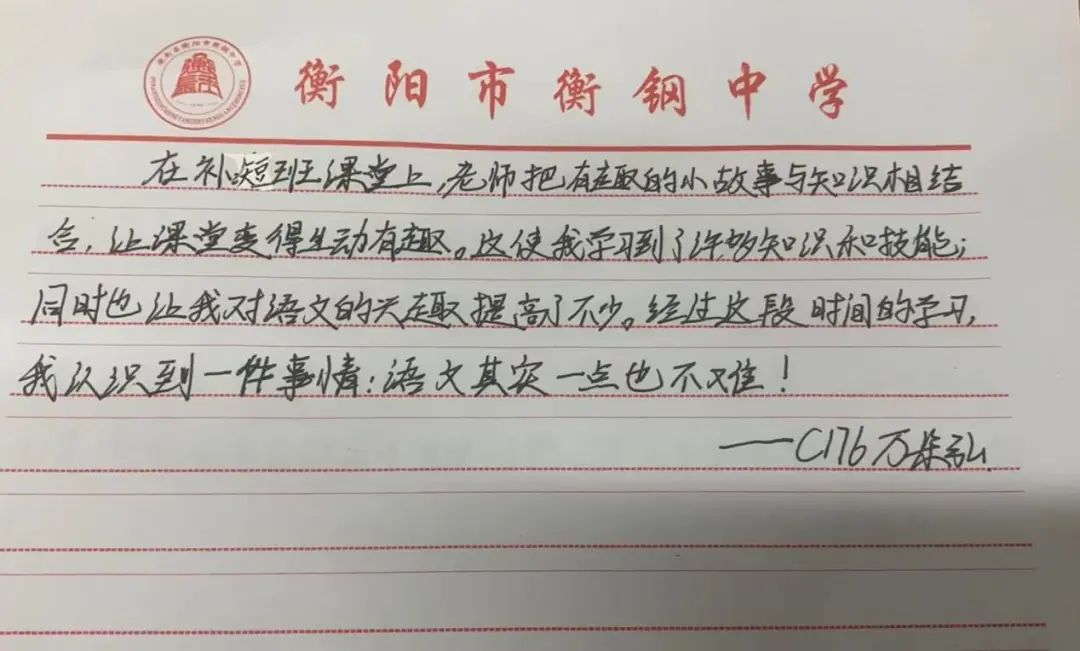 衡阳市衡钢中学
在补短班课堂上,老师把有趣的小故事与知识相结
合,让课堂变得生动有趣。这使我学习到了许多知识和技能;
同时也让我对语文的兴趣提高了不少。经过这段时间的学习,
我认识到一件事情:语文其实一点也不难!
——C176万